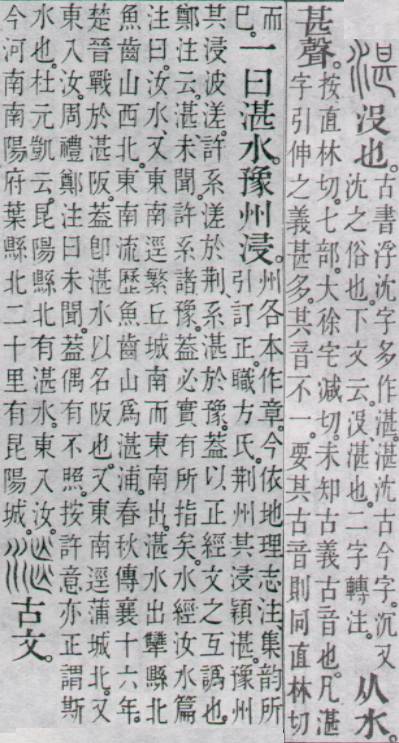 湛 沒也。
古書浮沈字多作湛。湛沈古今字。沉又
沈之俗也。下文云。沒、湛也。二字轉注。
从水。
甚聲。
按直林切。七部。大徐宅減切。未知古義古音也。凡湛
字引伸之義甚多。其音不一。要其古音則同直林切
而
巳。
一曰湛水。豫州浸。
州各本作章。今依地理志注、集韵所
引訂正。職方氏。荆州其浸潁湛。豫州
其浸波溠。許系溠於荆、系湛於豫。葢以正經文之互譌也。
鄭注云。湛、未聞。許系諸豫。葢必實有所指矣。水經汝水篇
注曰。汝水又東南逕繁丘城南而東南出。湛水出犨縣北
魚齒山西北。東南流歷魚齒山爲湛浦。春秋傳襄十六年。
楚晉戰於湛阪。葢卽湛水以名阪也。又東南逕蒲城北。又
東入汝。周禮鄭注曰未聞。葢偶有不照。按許意亦正謂斯
水也。杜元凱云。昆陽縣北有湛水。東入汝。
今河南南陽府葉縣北二十里有昆陽城。
古文。